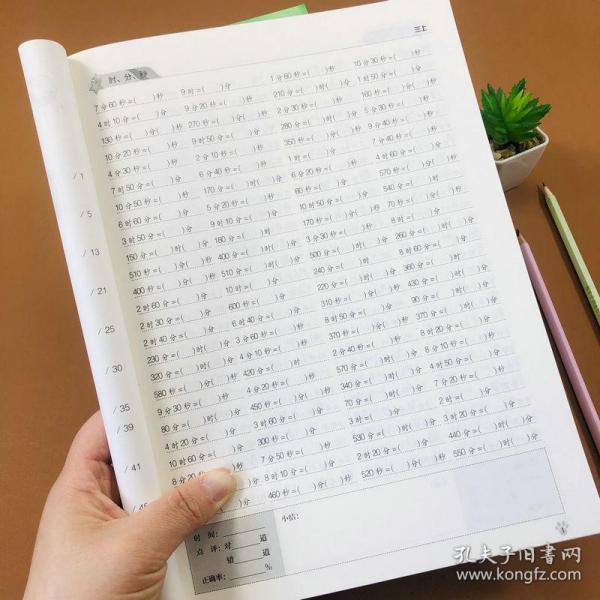 三上
时、分、秒
7分60秒=( )秒 9时=( )分 1分60秒=( )秒 10分30秒=( )秒
4时10分=( )分 9分20秒=( )秒 210分=( )时( )分 1时50分=( )分
130秒=( )分( )秒 270秒=( )分( )秒 2分30秒=( )秒 160秒=( )分( )秒
10分20秒=( )秒 9时50分=( )分 280分=( )时( )分 5分30秒=( )秒
4分30秒=( )秒 2分10秒=( )秒 350秒=( )分( )秒 9分40秒=( )秒
7时50分=( )分 6分40秒=( )秒 1时=( )分 7分40秒=( )秒
10分50秒=( )秒 170分=( )时( )分 6分20秒=( )秒 4时60分=( )分
6时60分=( )分 5分20秒=( )秒 60秒=( )分 570秒=( )分( )秒
3时50分=( )分 9时10分=( )分 10时50分=( )分 540分=( )时
150分=( )时( )分 180分=( )时 170秒=( )分( )秒 70秒=( )分( )秒
510秒=( )分( )秒 400分=( )时( )分 3分30秒=( )秒 8时=( )分
400秒=( )分( )秒 510分=( )时( )分 500分=( )时( )分 260分=( )时( )分
2时60分=( )分 10时=( )分 240分=( )时 8时60分=( )分
2时30分=( )分 600秒=( )分 220分=( )时( )分 360分=( )时
2时40分=( )分 6时40分=( )分 310秒=( )分( )秒 430分=( )时( )分
230分=( )时( )分 3分60秒=( )秒 8时50分=( )分 90分=( )时( )分
320分=( )时( )分 4分10秒=( )秒 370秒=( )分( )秒 370分=( )时( )分
580秒=( )分( )秒 420分=( )时 2分40秒=( )秒 8时20分=( )分
9分30秒=( )秒 4分20秒=( )秒 570分=( )时( )分 8分10秒=( )秒
80分=( )时( )分 450秒=( )分( )秒 340分=( )时( )分 4时50分=( )分
4时20分=( )分 3时60分=( )分 70分=( )时( )分 7分20秒=( )秒
10时60分=( )分 300秒=( )分 2时=( )分
8分20秒=( )秒 7分50秒=( )秒 530分=( )时( )分 3时20分=( )分
8时10分=( )分 2时20分=( )分 440分=( )时( )分
460秒=( )分( )秒 520秒=( )分( )秒 550分=( )时( )分
/ 1
/ 5
/ 13
/ 21
/ 25
/ 30
/ 35
/ 39
/ 41
/ 45
时 间:
点 评:对 道
错 道
正确率: %
小结:
1
孔夫子旧书网
www.kongfz.com